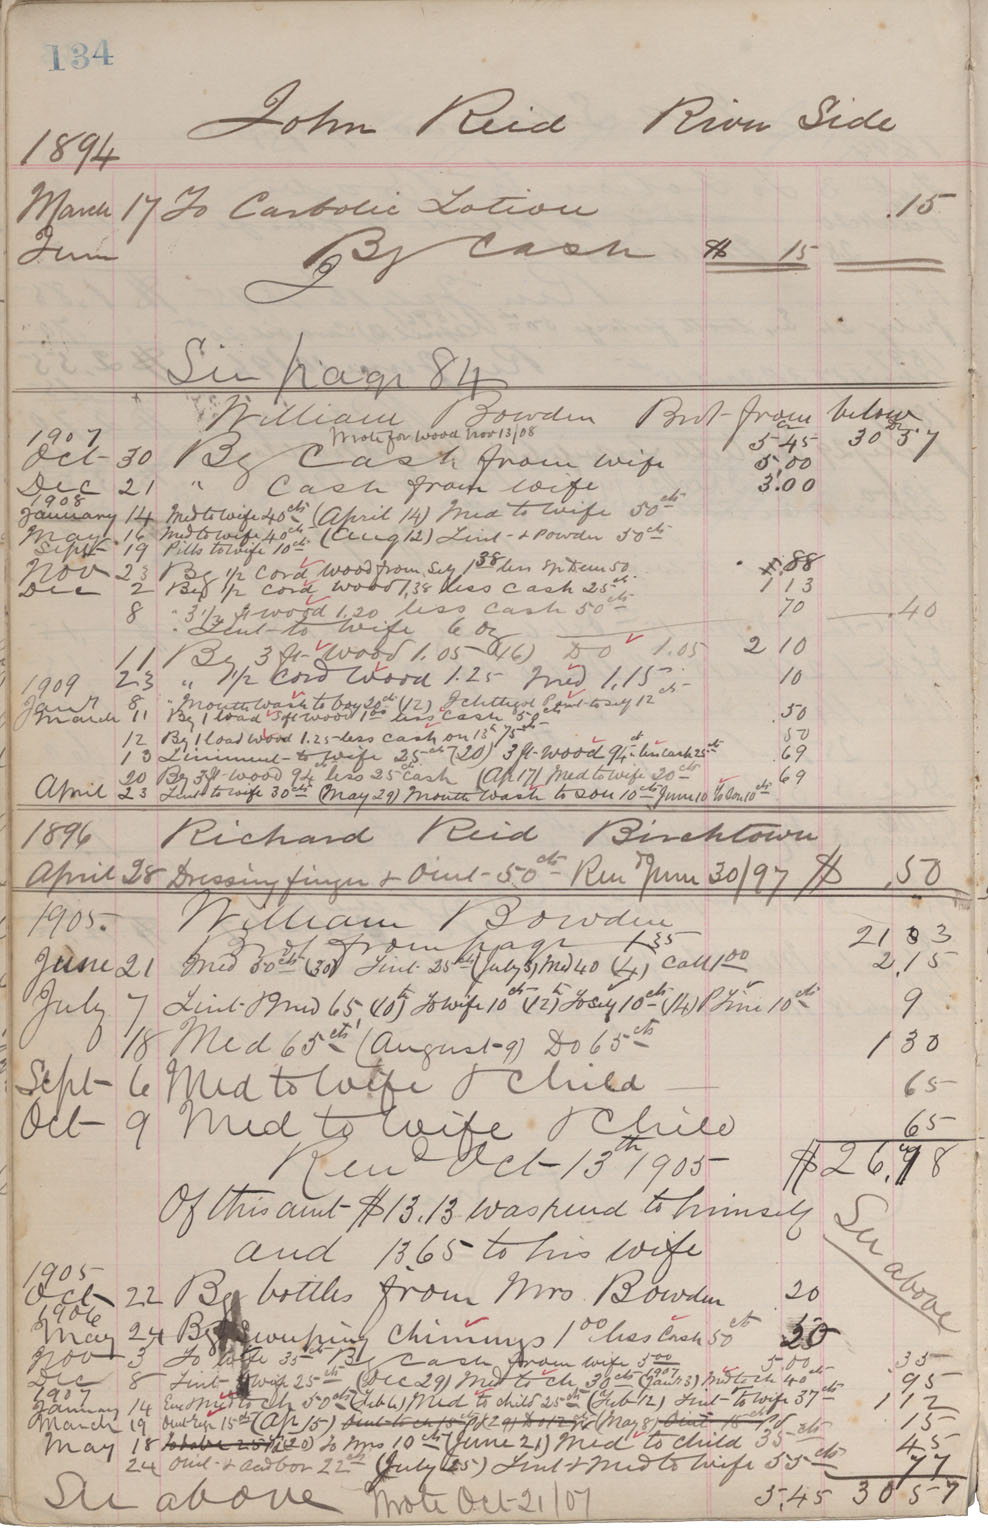 134
John Reid River Side
1894
March 17 To Carbolic Lotion .15
June By Cash $ 15
See page 84
William Bowden Brot from below
1907 Wrote for wood Nov 13/08 5 45 30 57
Oct 30 By Cash from wife 5.00
Dec 21 " Cash from wife 3.00
1908
January 14 Med to wife 40cts (April 14) Med to wife 50cts
May 16 Med to wife 40cts (Aug 12) Lint & Powder 50cts
Sept 19 Pills to wife 10cts
Nov 23 By 1/2 cord wood from self 1 38 less 50 .88
Dec 2 By 1/2 cord wood 1,38 less cash 25cts 1 13
8 " 3 1/2 ft wood 1.20 less cash 50cts 70
" Lint to wife 6 oz .40
11 By 3 ft wood 1.05 (16) Do 1.05 2 10
1909 23 " 1/2 cord wood 1.25 Med 1.15 10
Jany 8 " Mouth wash to boy 20ct (12) Ichthyol to self 12cts
March 11 By 1 load 3ft wood 1 00 less cash 50 .50
12 By 1 load wood 1.25 less cash on 13th 75cts 50
13 Liniment to wife 25cts (20) 3 ft wood 94ct less cash 25cts .69
20 By 3 ft wood 94c less 25cts cash (Ap 17) Med to wife 20cts 69
April 23 Lint to wife 30cts (May 29) Mouth Wash to son 10cts June 10 to son 10cts
1896 Richard Reid Birchtown
April 28 Dressing finger & Oint 50cts Rend June 30/97 $ .50
1905 William Bowden
Brot from page 135 21 33
June 21 Med 50cts (30) Lint 25cts (July 3) Med 40 (4) Call 1 00 2,15
July 7 Lint & Med 65 (10th) To wife 10cts (12th) To self 10cts (14) 10cts 9
18 Med 65cts (August 9) Do 65cts 1 30
Sept 6 Med to wife & Child 65
Oct 9 Med to wife & Child 65
Rend Oct 13th 1905 $ 26,98
Of this amt $13.13 was rend to himself
and 1365 to his wife
See above
1905
Oct 22 By bottles from Mrs. Bowden .20
1906
May 24 By sweeping chimneys 1 00 less Cash 50ct 50
Nov 3 To wife 35cts By Cash from wife 5 00 5.00 .35
Dec 8 Lint to wife 25cts (Dec 29) Med to ch 30cts (1907 Jan 3) Med to ch 40cts .95
1907
January 14 Med to ch 50cts (Feb 4) Med to child 25cts (Feb 12) Lint to wife 37cts 1 12
March 19 15cts (Ap 15) Oint to ch 15cts (May 8) Oint 15cts .15
May 18 (20) To Mrs 10cts (June 21) Med to child 35cts .45
24 Oint & acd bor 22cts (July 25) Lint & Med to wife 55cts 77
See above Wrote Oct 21/07 5,45 30 57